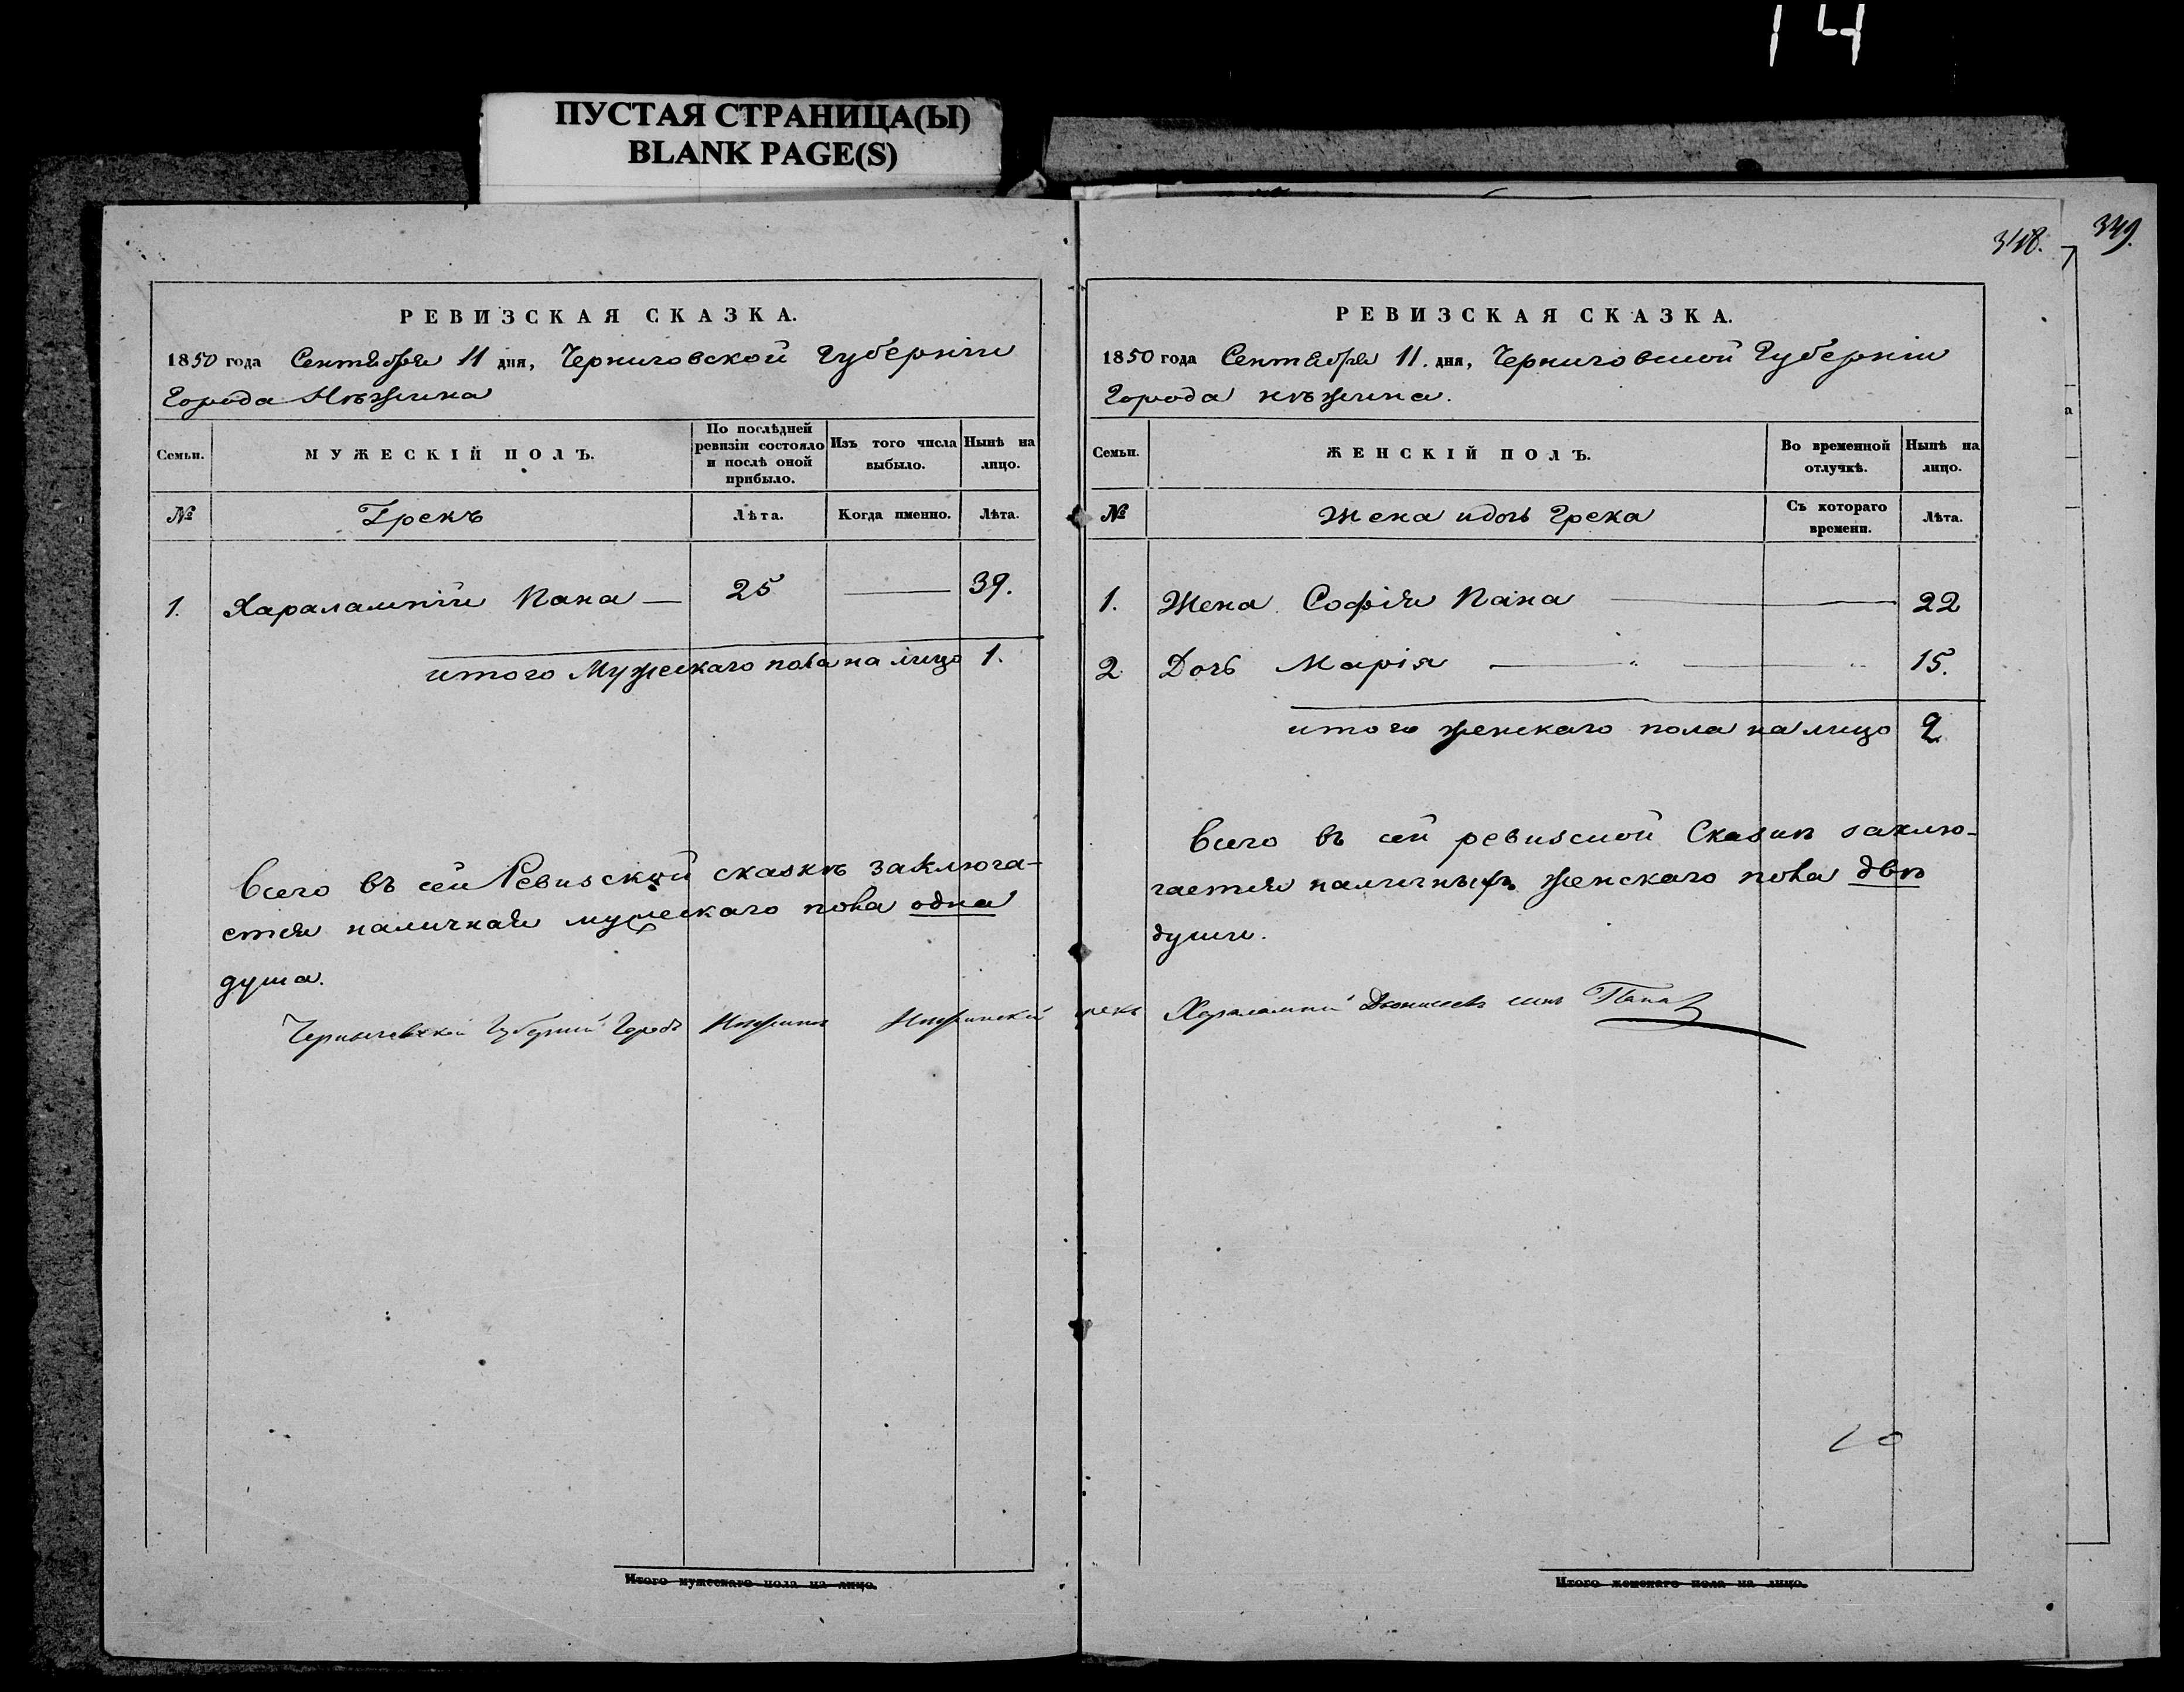 14
ПУСТАЯ СТРАНИЦА(Ы)
BLANK PAGE(S)
РЕВИЗСКАЯ СКАЗКА.
1850 года Сентября 11 дня, Черниговской Губернiи
Города Нѣжина
Семьи.
МУЖЕСКIЙ ПОЛЪ.
По послѣдней ревизiи состояло и послѣ оной прибыло.
Изъ того числа выбыло.
Нынѣ на лицо.
№
Грекъ
Лѣта.
Когда именно.
Лѣта.
1. Харалампiй Пана — 25 — 39.
итого Мужескаго пола на лицо 1.
Всего въ сей Ревизской сказкѣ заключа-
ется наличная мужескаго пола одна
душа.
Итого мужескаго пола на лицо.
348.
349.
РЕВИЗСКАЯ СКАЗКА.
1850 года Сентября 11. дня, Черниговской Губернiи
Города нѣжина.
Семьи.
ЖЕНСКIЙ ПОЛЪ.
Во временной отлучкѣ.
Нынѣ на лицо.
№
Жена идочь Грека
Съ котораго времени.
Лѣта.
1. Жена Софiя Пана — 22
2 Дочь Марiя — " — " 15.
итого женскаго пола на лицо 2
Всего въ сей ревизской Сказкѣ заклю-
чается наличныхъ женскаго пола двѣ
души.
Черниговской Губернiи Городъ Нѣжинъ Нѣжинскiй грекъ Харалампiй Дiонисiевъ сынъ Пана
Итого женскаго пола на лицо.